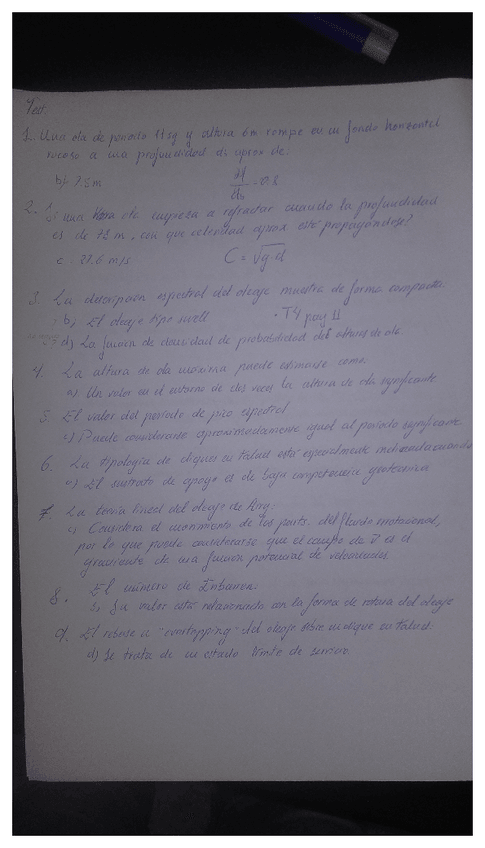 Test.
1. Una ola de periodo 11sg y altura 6m rompe en un fondo horizontal
rocoso a una profundidad db aprox de:
b) 7.5m
H/db = 0.8
2. Si una ola empieza a refractar cuando la profundidad
es de 78 m, con que celeridad aprox está propagándose?
c. 27.6 m/s
C = √g·d
3. La descripción espectral del oleaje muestra de forma compacta:
b) El oleaje tipo swell
· T4 pag 11
d) La función de densidad de probabilidad del alturas de ola
4. La altura de ola máxima puede estimarse como:
a) Un valor en el entorno de dos veces la altura de ola significante.
5. El valor del periodo de pico espectral
c) Puede considerarse aproximadamente igual al periodo significante
6. La tipología de diques en talud está especialmente indicada cuando
c) El sustrato de apoyo es de baja competencia geotecnica
7. La teoría lineal del oleaje de Airy:
c) Considera el movimiento de las parts. del fluido irrotacional,
por lo que puede considerarse que el campo de V es el
gradiente de una función potencial de velocidades
8. El número de Iribarren.
b) Su valor está relacionado con la forma de rotura del oleaje
9. El rebase u "overtopping" del oleaje sobre un dique en talud:
d) Se trata de un estado límite de servicio.